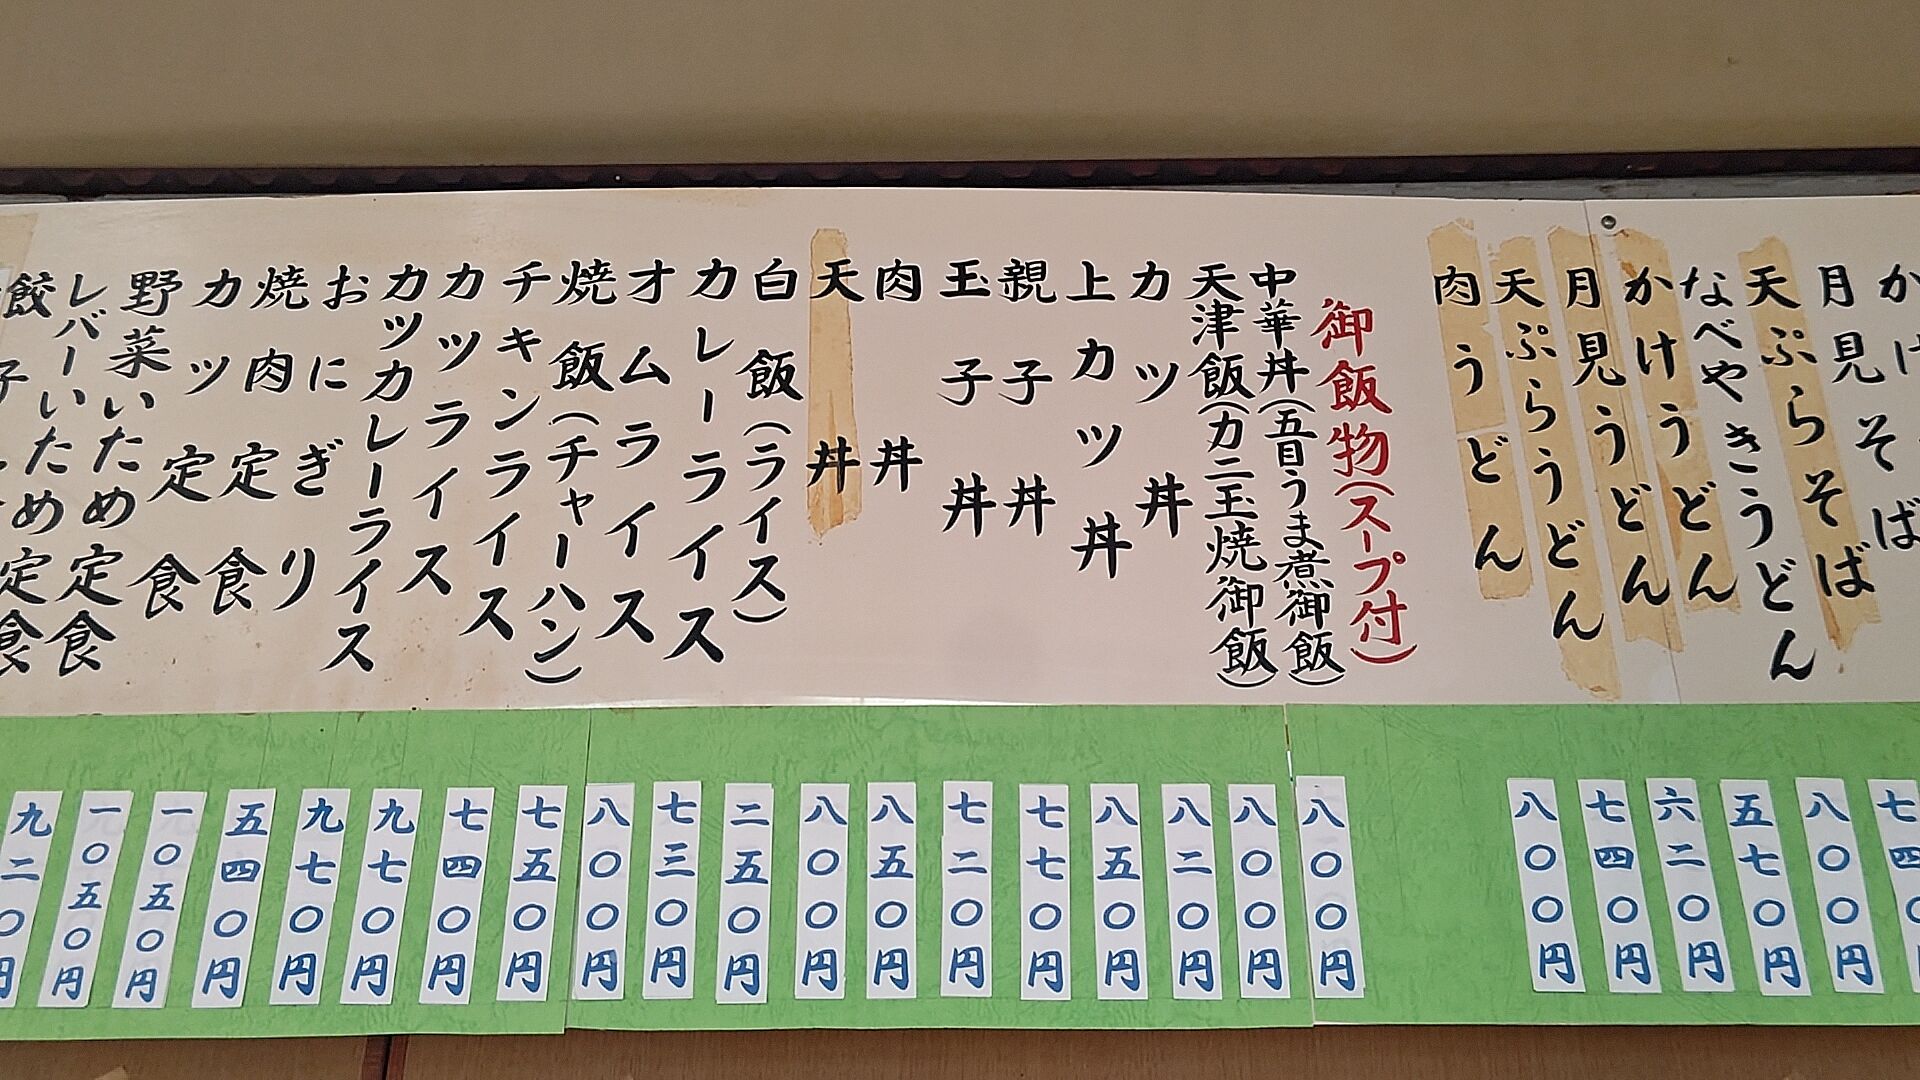 かけ
月見そば
天ぷらそば
なべやきうどん
かけうどん
月見うどん
天ぷらうどん
肉うどん
御飯物(スープ付)
中華丼(五目うま煮御飯)
天津飯(カニ玉焼御飯)
カツ丼
上カツ丼
親子丼
玉子丼
肉丼
天丼
白飯(ライス)
カレーライス
オムライス
焼飯(チャーハン)
チキンライス
カツライス
カツカレーライス
おにぎり
焼肉定食
カツ定食
野菜いため定食
レバーいため定食
餃子
定食
七四〇
八〇〇円
五七〇円
六二〇円
七四〇円
八〇〇円
八〇〇円
八〇〇円
八二〇円
八五〇円
七七〇円
七二〇円
八五〇円
八〇〇円
二五〇円
七三〇円
八〇〇円
七五〇円
七四〇円
九七〇円
九七〇円
五四〇円
一〇五〇円
一〇五〇円
九二〇円